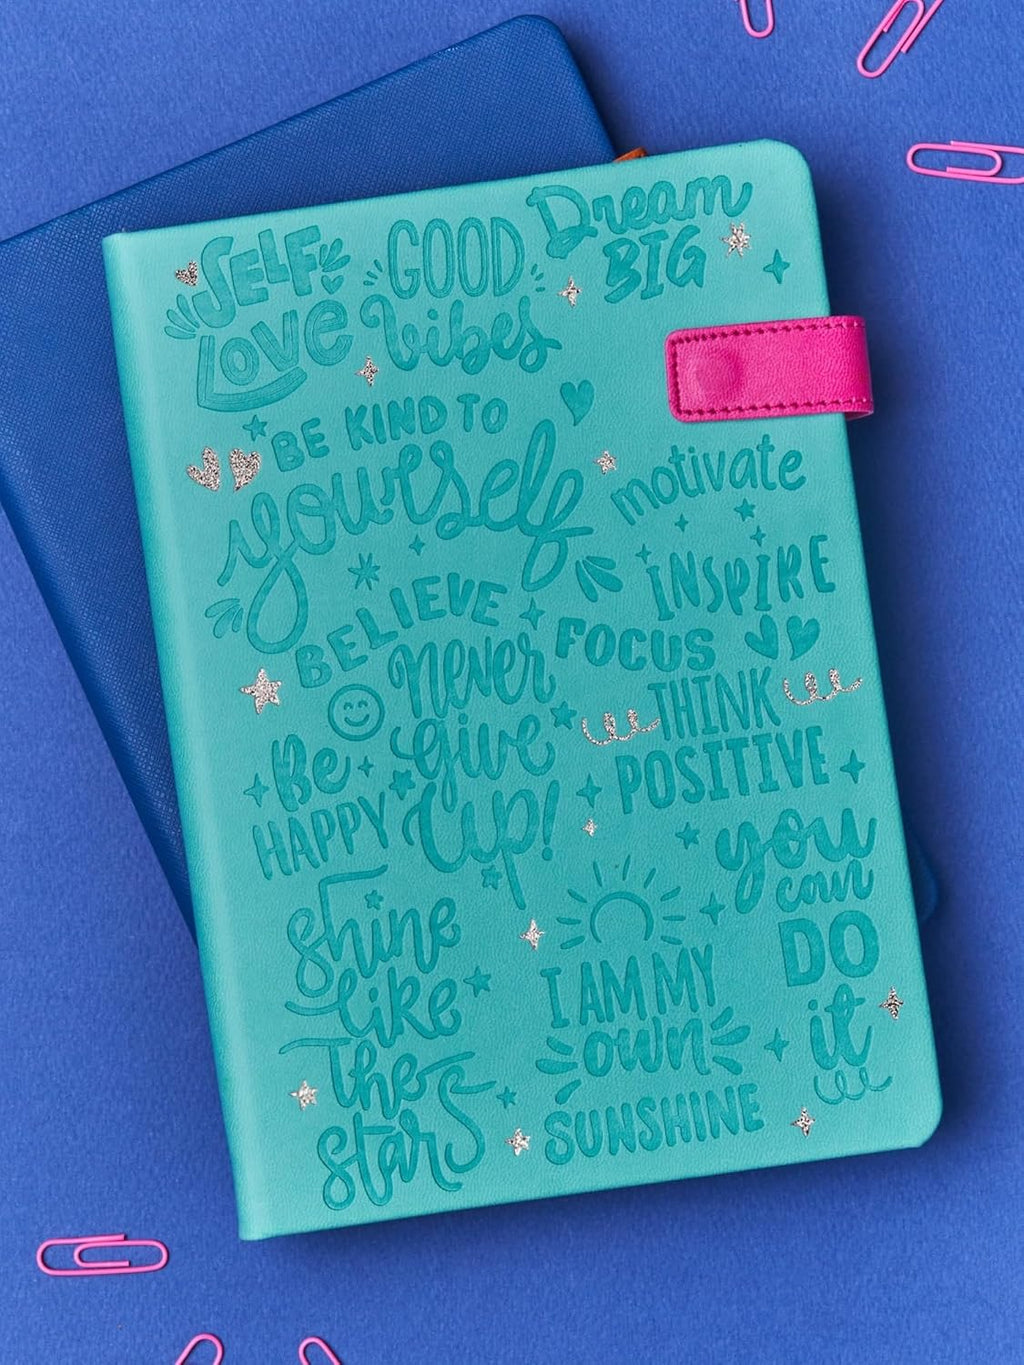 SELF
LOVE
GOOD
vibes
Dream
BIG
BE KIND TO
yourself
motivate
INSPIRE
BELIEVE
FOCUS
never
give
up!
THINK
POSITIVE
Be
HAPPY
you
can
DO
it
Shine
like
The
stars
I AM MY
own
SUNSHINE